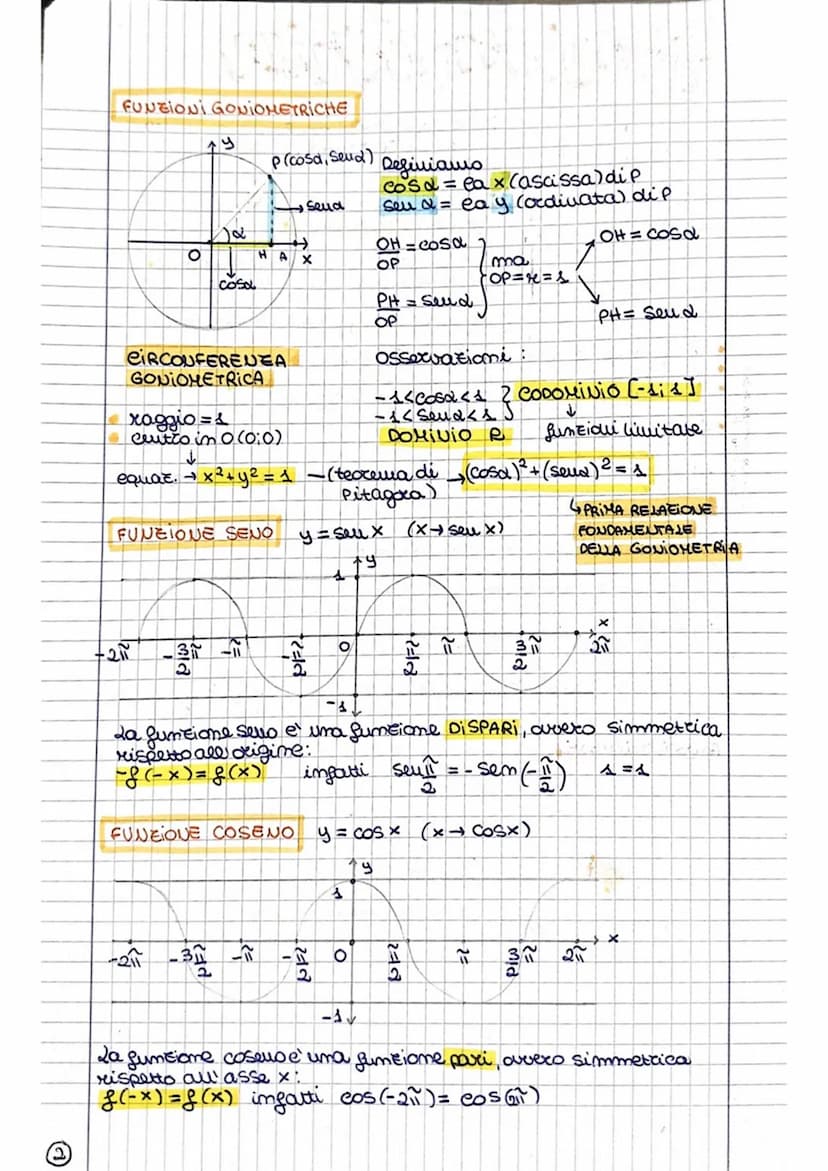 FUNZIONI GONIOMETRICHE
y
P(cosα, senα)
Definiamo
cosα = la x (ascissa) di P
senα = la y (ordinata) di P
senα
α
O H A x
cosα
OH/OP = cosα
PH/OP = senα
ma
OP=r=1
OH = cosα
PH = senα
CIRCONFERENZA
GONIOMETRICA
raggio = 1
centro in O(0;0)
↓
equaz. → x²+y² = 1 — (teorema di Pitagora) → (cosα)²+(senα)² = 1
Osservazioni:
-1<cosα<1
-1<senα<1
} CODOMINIO [-1;1]
↓
DOMINIO R funzioni limitate
↳ PRIMA RELAZIONE
FONDAMENTALE
DELLA GONIOMETRIA
FUNZIONE SENO y = sen x (x→ sen x)
y
1
x
-2π -3/2π -π -π/2 0 π/2 π 3/2π 2π
-1
La funzione seno è una funzione DISPARI, ovvero simmetrica
rispetto all'origine:
-f(-x) = f(x) infatti sen π/2 = - sen(-π/2) 1 = 1
FUNZIONE COSENO y = cos x (x→ cosx)
y
1
x
-2π -3π/2 -π -π/2 0 π/2 π 3/2π 2π
-1
La funzione coseno è una funzione pari, ovvero simmetrica
rispetto all'asse x:
f(-x) = f(x) infatti cos(-2π) = cos(2π)
2